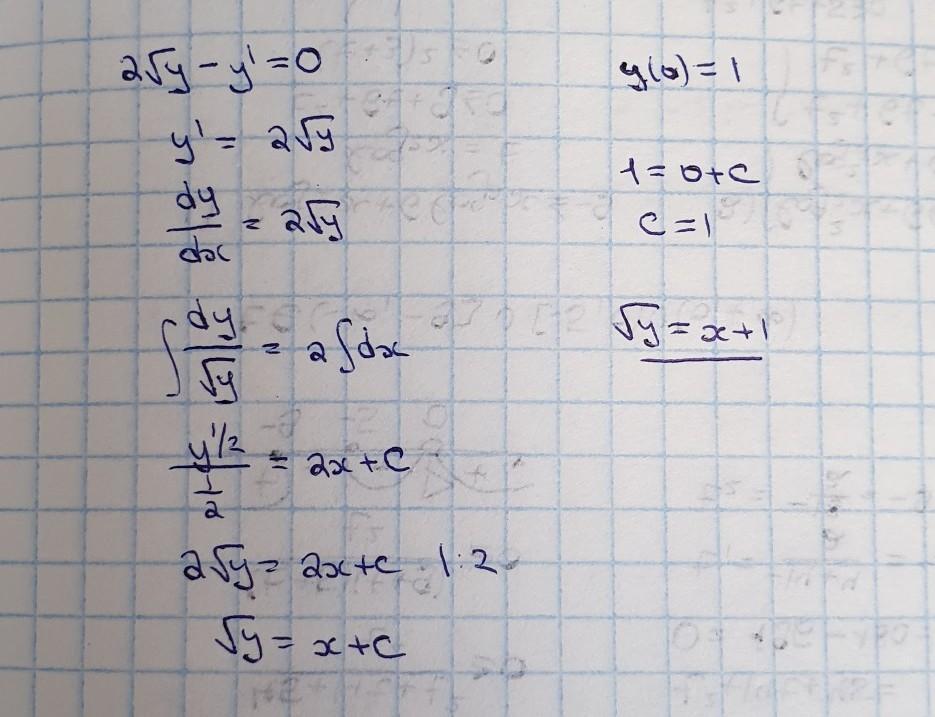 2√y - y' = 0
y' = 2√y
dy/dx = 2√y
∫ dy/√y = 2∫dx
y^1/2 / 1/2 = 2x + C
2√y = 2x + c |:2
√y = x + c
y(0) = 1
1 = 0 + c
c = 1
√y = x + 1